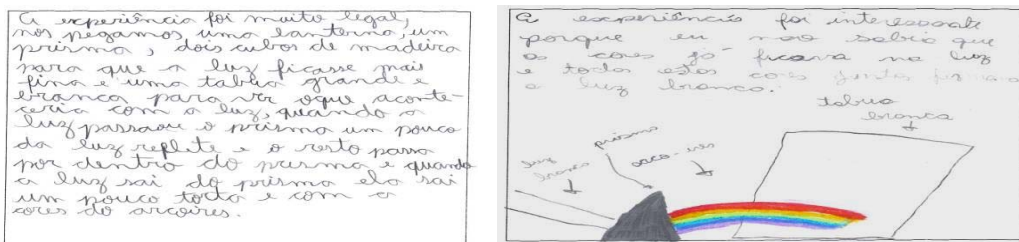 A experiência foi muito legal,
nos pegamos uma lanterna, um
prisma, dois cubos de madeira
para que a luz ficasse mais
fina e uma tabua grande e
branca para ver oque aconte-
ceria com a luz, quando a
luz passaou o prisma um pouco
da luz replite e o resto passa
por dentro do prisma e quando
a luz sai do prisma ela sai
um pouco torta e com a
cores do arcoires.
A experiência foi interessante
porque eu não sabia que
as cores já ficava na luz
e todas estas cores juntas
a luz branca.
tabua
branca
prisma
luz
branca